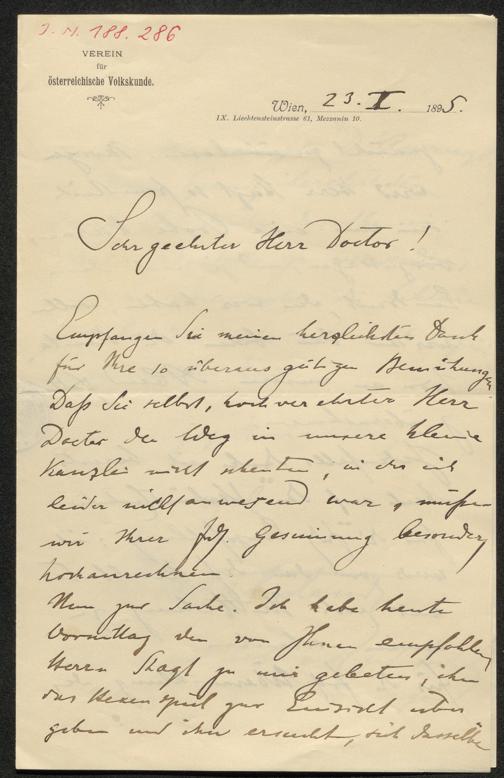 J. N. 188.286
VEREIN
für
österreichische Volkskunde.
Wien, 23. X. 1895.
IX. Liechtensteinstrasse 61, Mezzanin 10.
Sehr geehrter Herr Doctor!
Empfangen Sie meinen herzlichsten Dank
für Ihre so überaus gütigen Bemühungen.
Daß Sie selbst, hochverehrter Herr
Doctor den Weg in unsere kleine
Kanzlei nicht scheuten, in der ich
leider nicht anwesend war, müssen
wir Ihrer frdl. Gesinnung besonders
hochanrechnen.
Nun zur Sache. Ich habe heute
Vormittag den von Ihnen empfohlen
Herrn zu mir gebeten, ihm
das Hexenspiel zur Einsicht über
geben und ihn ersucht, sich dasselbe